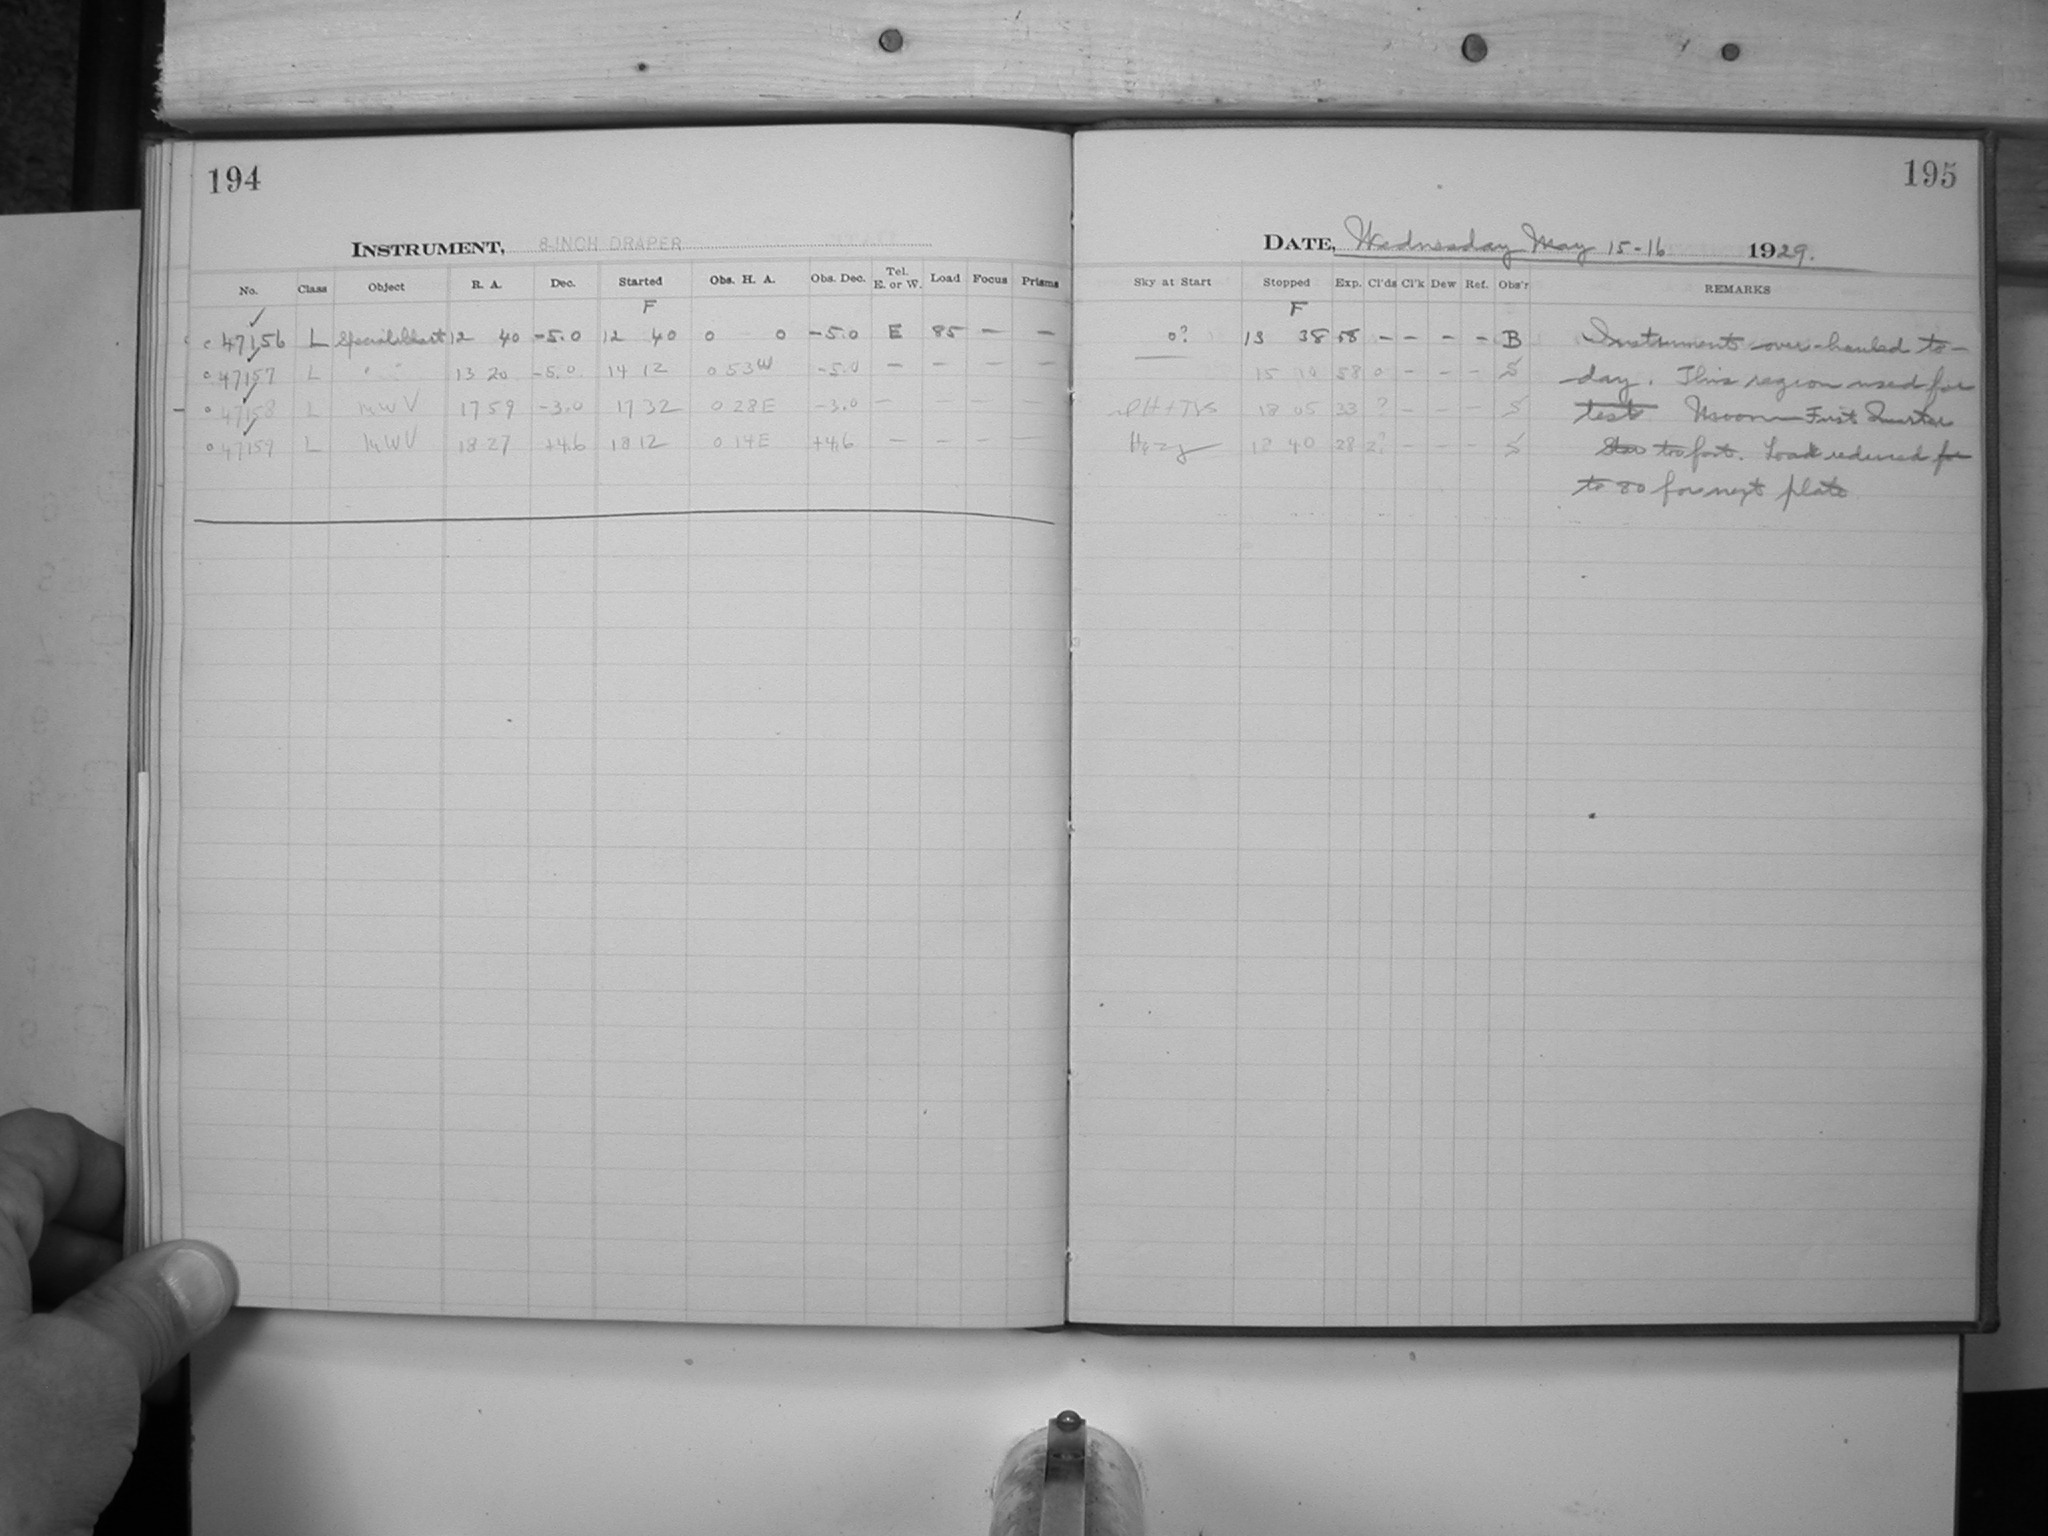 194
INSTRUMENT, 8-INCH DRAPER
No. Class Object R. A. Dec. Started Obs. H. A. Obs. Dec. Tel. E. or W. Load Focus Prisms
F
c 47156 L Special Chart 12 40 -5.0 12 40 0 0 -5.0 E 85 - -
o 47157 L " " 13 20 -5.0 14 12 0 53 W -5.0 - - - -
o 47158 L MWV 17 59 -3.0 17 32 0 28 E -3.0 - - - -
o 47159 L MWV 18 27 +4.6 18 12 0 14 E +4.6 - - - -
195
DATE, Wednesday May 15-16 1929.
Sky at Start Stopped Exp. Cl'ds Cl'k Dew Ref. Obs'r REMARKS
F
0? 13 38 58 - - - - B Instrument over-hauled to-
15 10 58 0 - - - S day. This region used for
18 05 33 ? - - - S test Moon First Quarter
Hazy 18 40 28 2? - - - S too fast. Load reduced for
to 80 for next plate